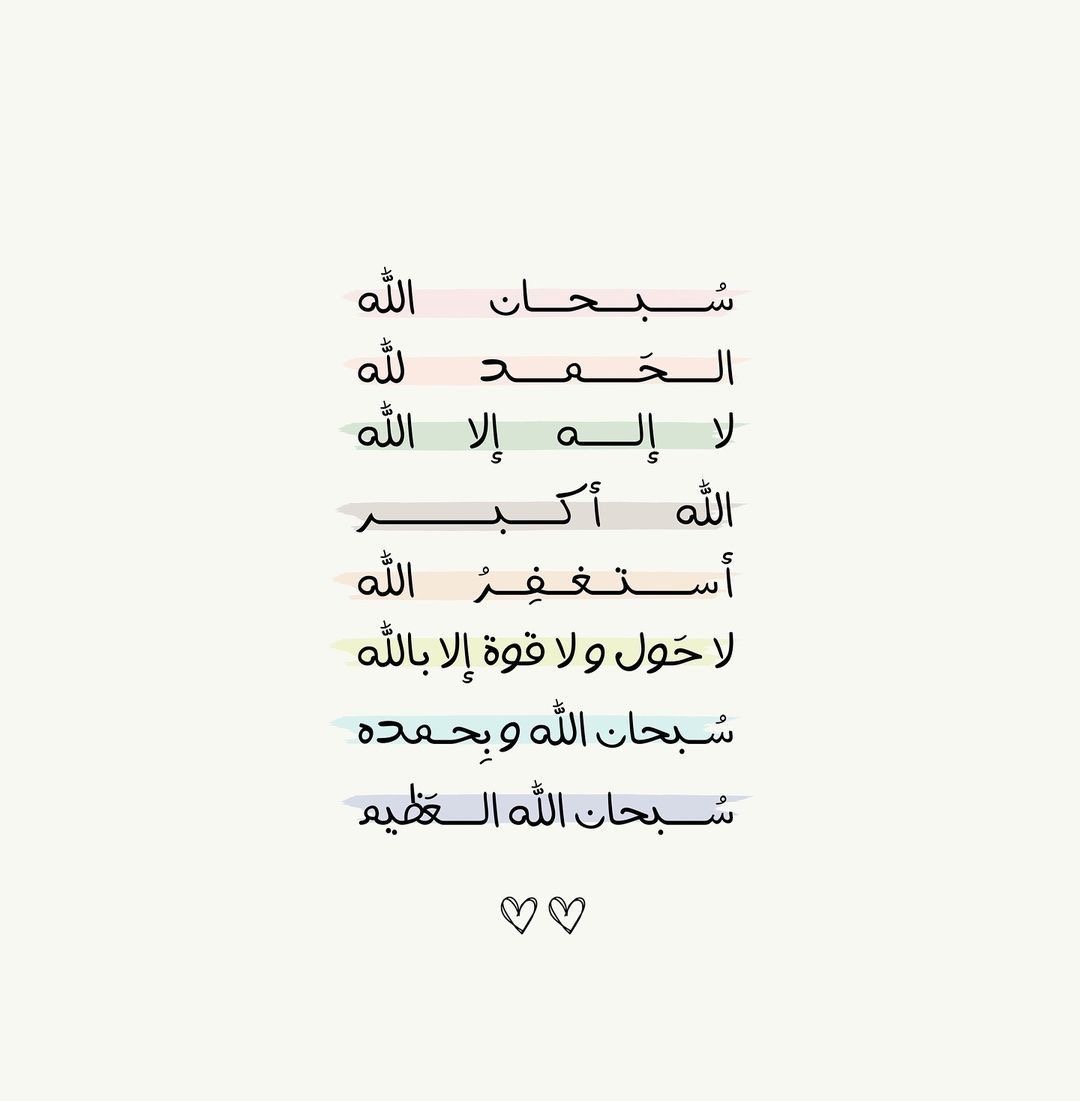 سُبحان الله
الحَمد لله
لا إله إلا الله
الله أكبر
أستغفِرُ الله
لا حَول ولا قوة إلا بالله
سُبحان الله وبِحمده
سُبحان الله العَظيم